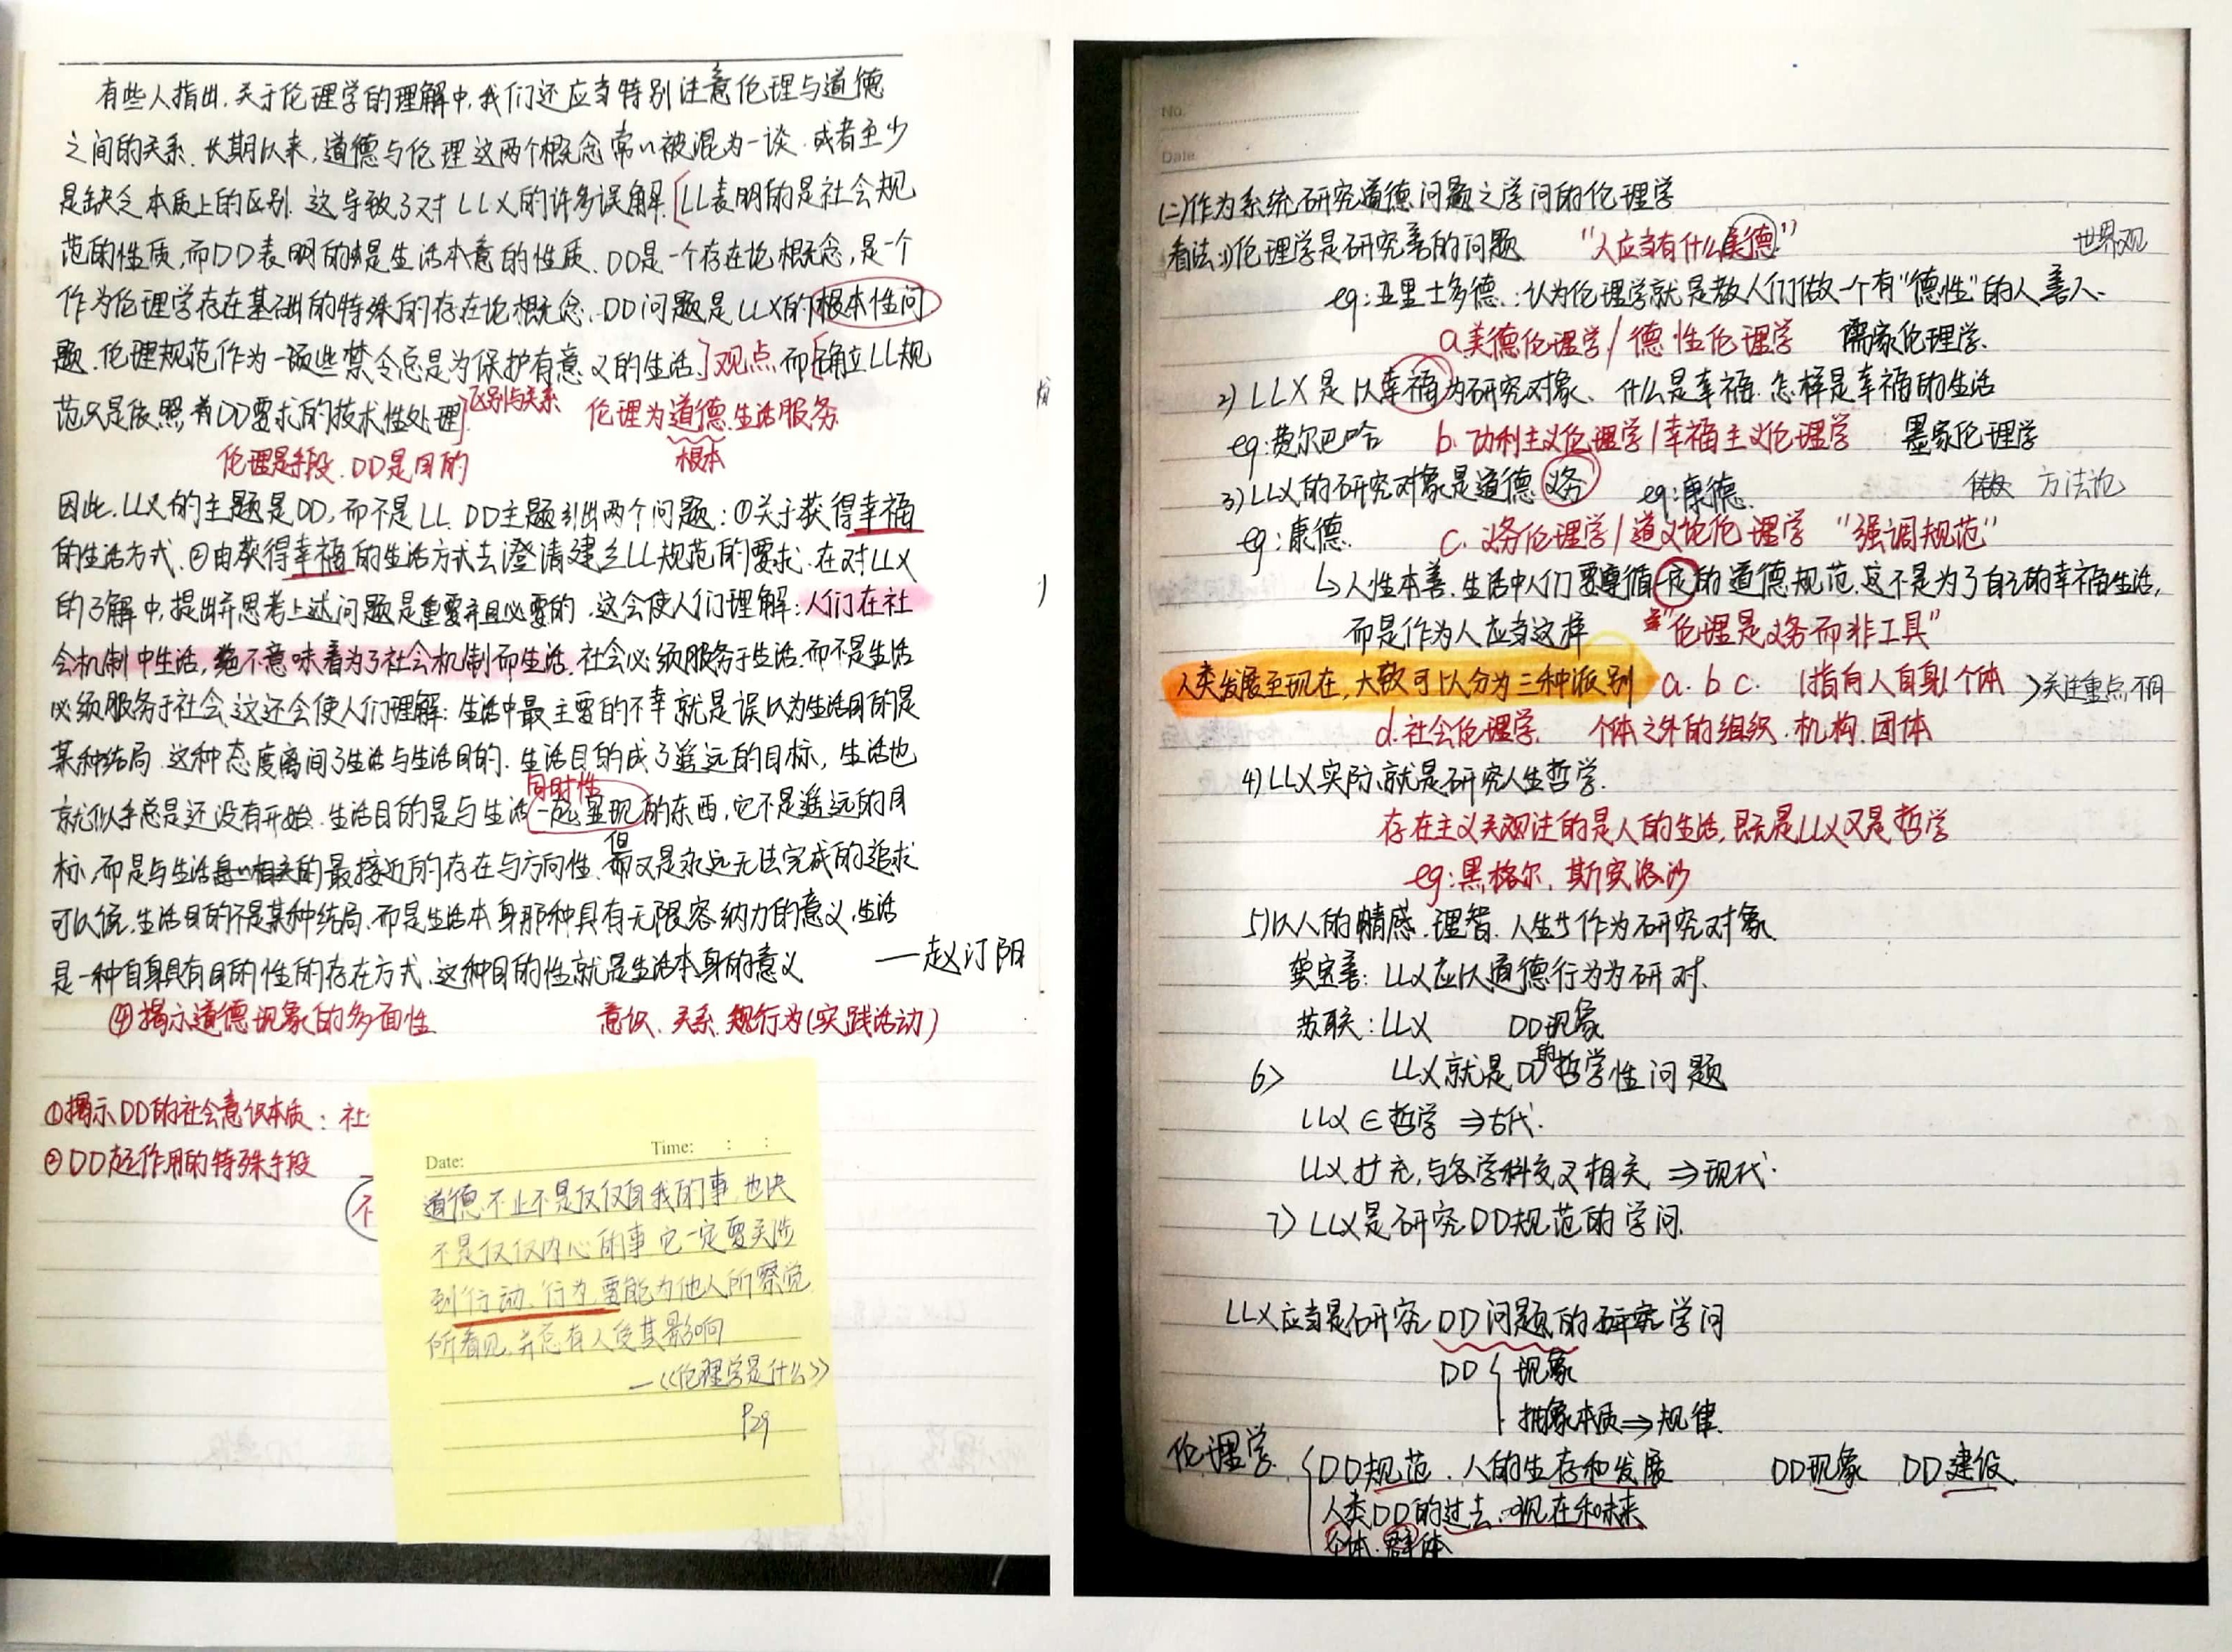 有些人指出,关于伦理学的理解中,我们还应当特别注意伦理与道德
之间的关系.长期以来,道德与伦理这两个概念常々被混为一谈.或者至少
是缺乏本质上的区别.这导致了对LLX的许多误解.[LL表明的是社会规
范的性质,而DD表明的是生活本意的性质.DD是一个存在论概念,是一个
作为伦理学存在基础的特殊的存在论概念.DD问题是LLX的根本性问
题.伦理规范作为一些禁令总是为保护有意义的生活]观点.而[确立LL规
范只是依照着DD要求的技术性处理]区别与关系 伦理为道德生活服务.
伦理是手段.DD是目的 根本
因此.LLX的主题是DD,而不是LL.DD主题引出两个问题:①关于获得幸福
的生活方式.②由获得幸福的生活方式去澄清建立LL规范的要求.在对LLX
的了解中,提出并思考上述问题是重要并且必要的.这会使人们理解:人们在社
会机制中生活,绝不意味着为了社会机制而生活.社会必须服务于生活.而不是生活
必须服务于社会.这还会使人们理解:生活中最主要的不幸就是误以为生活目的是
某种结局.这种态度离间了生活与生活目的.生活目的成了遥远的目标,生活也
同时性
就似乎总是还没有开始.生活目的是与生活一起显现的东西,它不是遥远的目
标,而是与生活最接近的存在与方向性.但又是永远无法完成的追求
可以说.生活目的不是某种结局.而是生活本身那种具有无限容纳力的意义.生活
是一种自身具有目的性的存在方式.这种目的性就是生活本身的意义 ——赵汀阳
④揭示道德现象的多面性. 意识.关系.行为(实践活动)
①揭示DD的社会意识本质:社
②DD起作用的特殊手段
不
Date: Time: : :
道德不止不是仅仅自我的事.也决
不是仅仅内心的事.它一定要关涉
到行动.行为.要能为他人所察觉.
所看见.并总有人受其影响
—《伦理学是什么》
P29
No.
Date
(二)作为系统研究道德问题之学问的伦理学
看法:1)伦理学是研究善的问题 "人应当有什么美德" 世界观
eg:亚里士多德.:认为伦理学就是教人们做一个有"德性"的人.善人.
a.美德伦理学/德性伦理学 儒家伦理学.
2)LLX是以幸福为研究对象、什么是幸福.怎样是幸福的生活
eg:费尔巴哈 b.功利主义伦理学/幸福主义伦理学 墨家伦理学
3)LLX的研究对象是道德义务 eg:康德. 做 方法论
eg:康德. c.义务伦理学/道义论伦理学 "强调规范"
↳人性本善.生活中人们要遵循一定的道德规范.这不是为了自己的幸福生活,
而是作为人应当这样 "伦理是义务而非工具"
人类发展至现在,大致可以分为三种派别 a.b c. 指向人自身个体 >关注重点不同
d.社会伦理学. 个体之外的组织.机构.团体
4)LLX实际就是研究人生哲学.
存在主义关注的是人的生活,既是LLX又是哲学
eg:黑格尔.斯宾洛沙
5)以人的情感.理智.人生作为研究对象.
龚宝善:LLX应以道德行为为研对.
苏联:LLX DD现象
6> LLX就是DD的哲学性问题
LLX∈哲学⇒古代.
LLX扩充,与各学科交叉相关⇒现代.
7)LLX是研究DD规范的学问.
LLX应当是研究DD问题的学问
DD{现象
抽象本质⇒规律.
伦理学{DD规范.人的生存和发展 DD现象 DD建设.
人类DD的过去.现在和未来
个体.群体